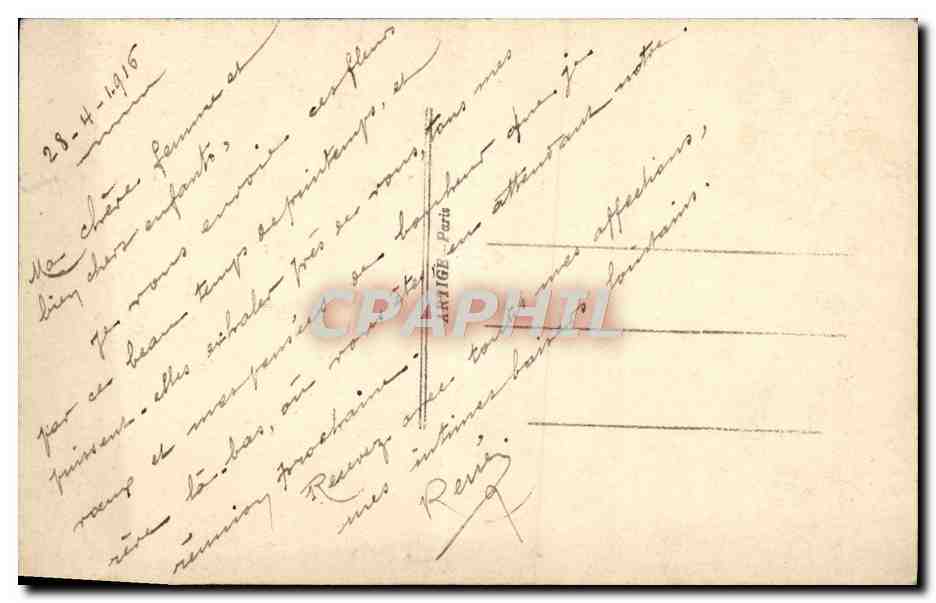 28-4-1916
Ma chère femme et
bien chers enfants,
Je vous envoie ces fleurs
par ce beau temps de printemps, et
puissent-elles exhaler près de vous, tous mes
vœux et mes pensées de bonheur que je
rêve là-bas, où vous êtes en attendant notre
réunion prochaine.
Recevez avec toutes mes affections,
mes intimes baisers lointains.
René
ARTIGE - Paris
CPAPHIL